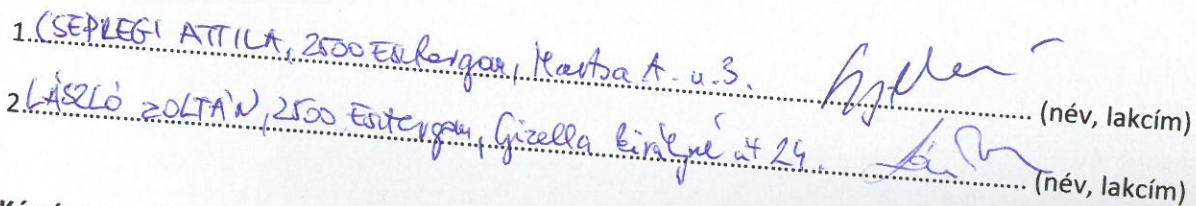 1. CSEPREGI ATTILA, 2500 Esztergom, Martsa A. u. 3. (név, lakcím)
2. LÁSZLÓ ZOLTÁN, 2500 Esztergom, Gizella királyné út 24. (név, lakcím)